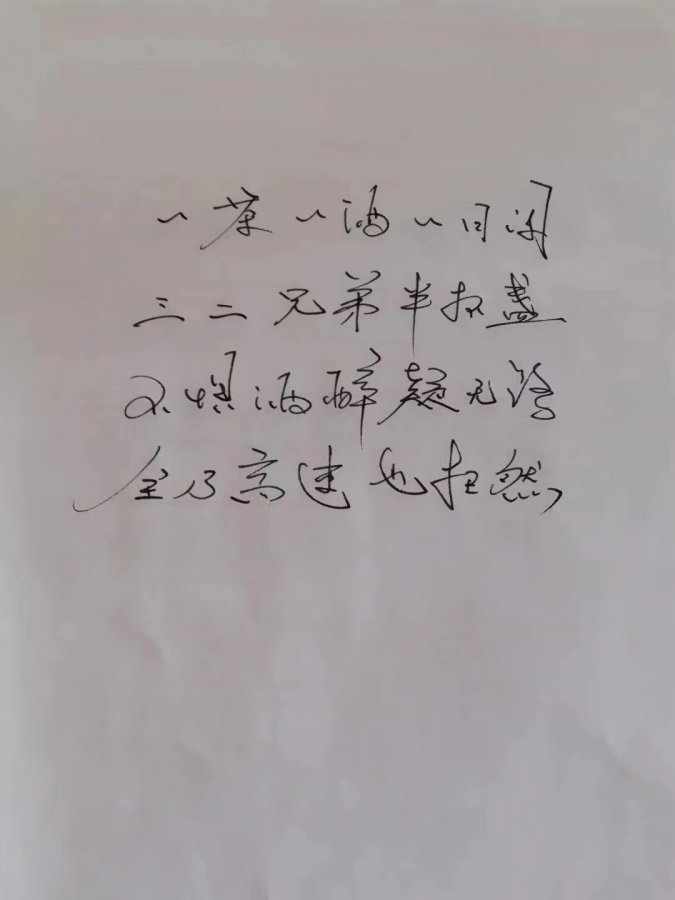 一茶一酒一日闲
三二兄弟半取盏
不惧酒醉疑无路
全乃高速也枉然